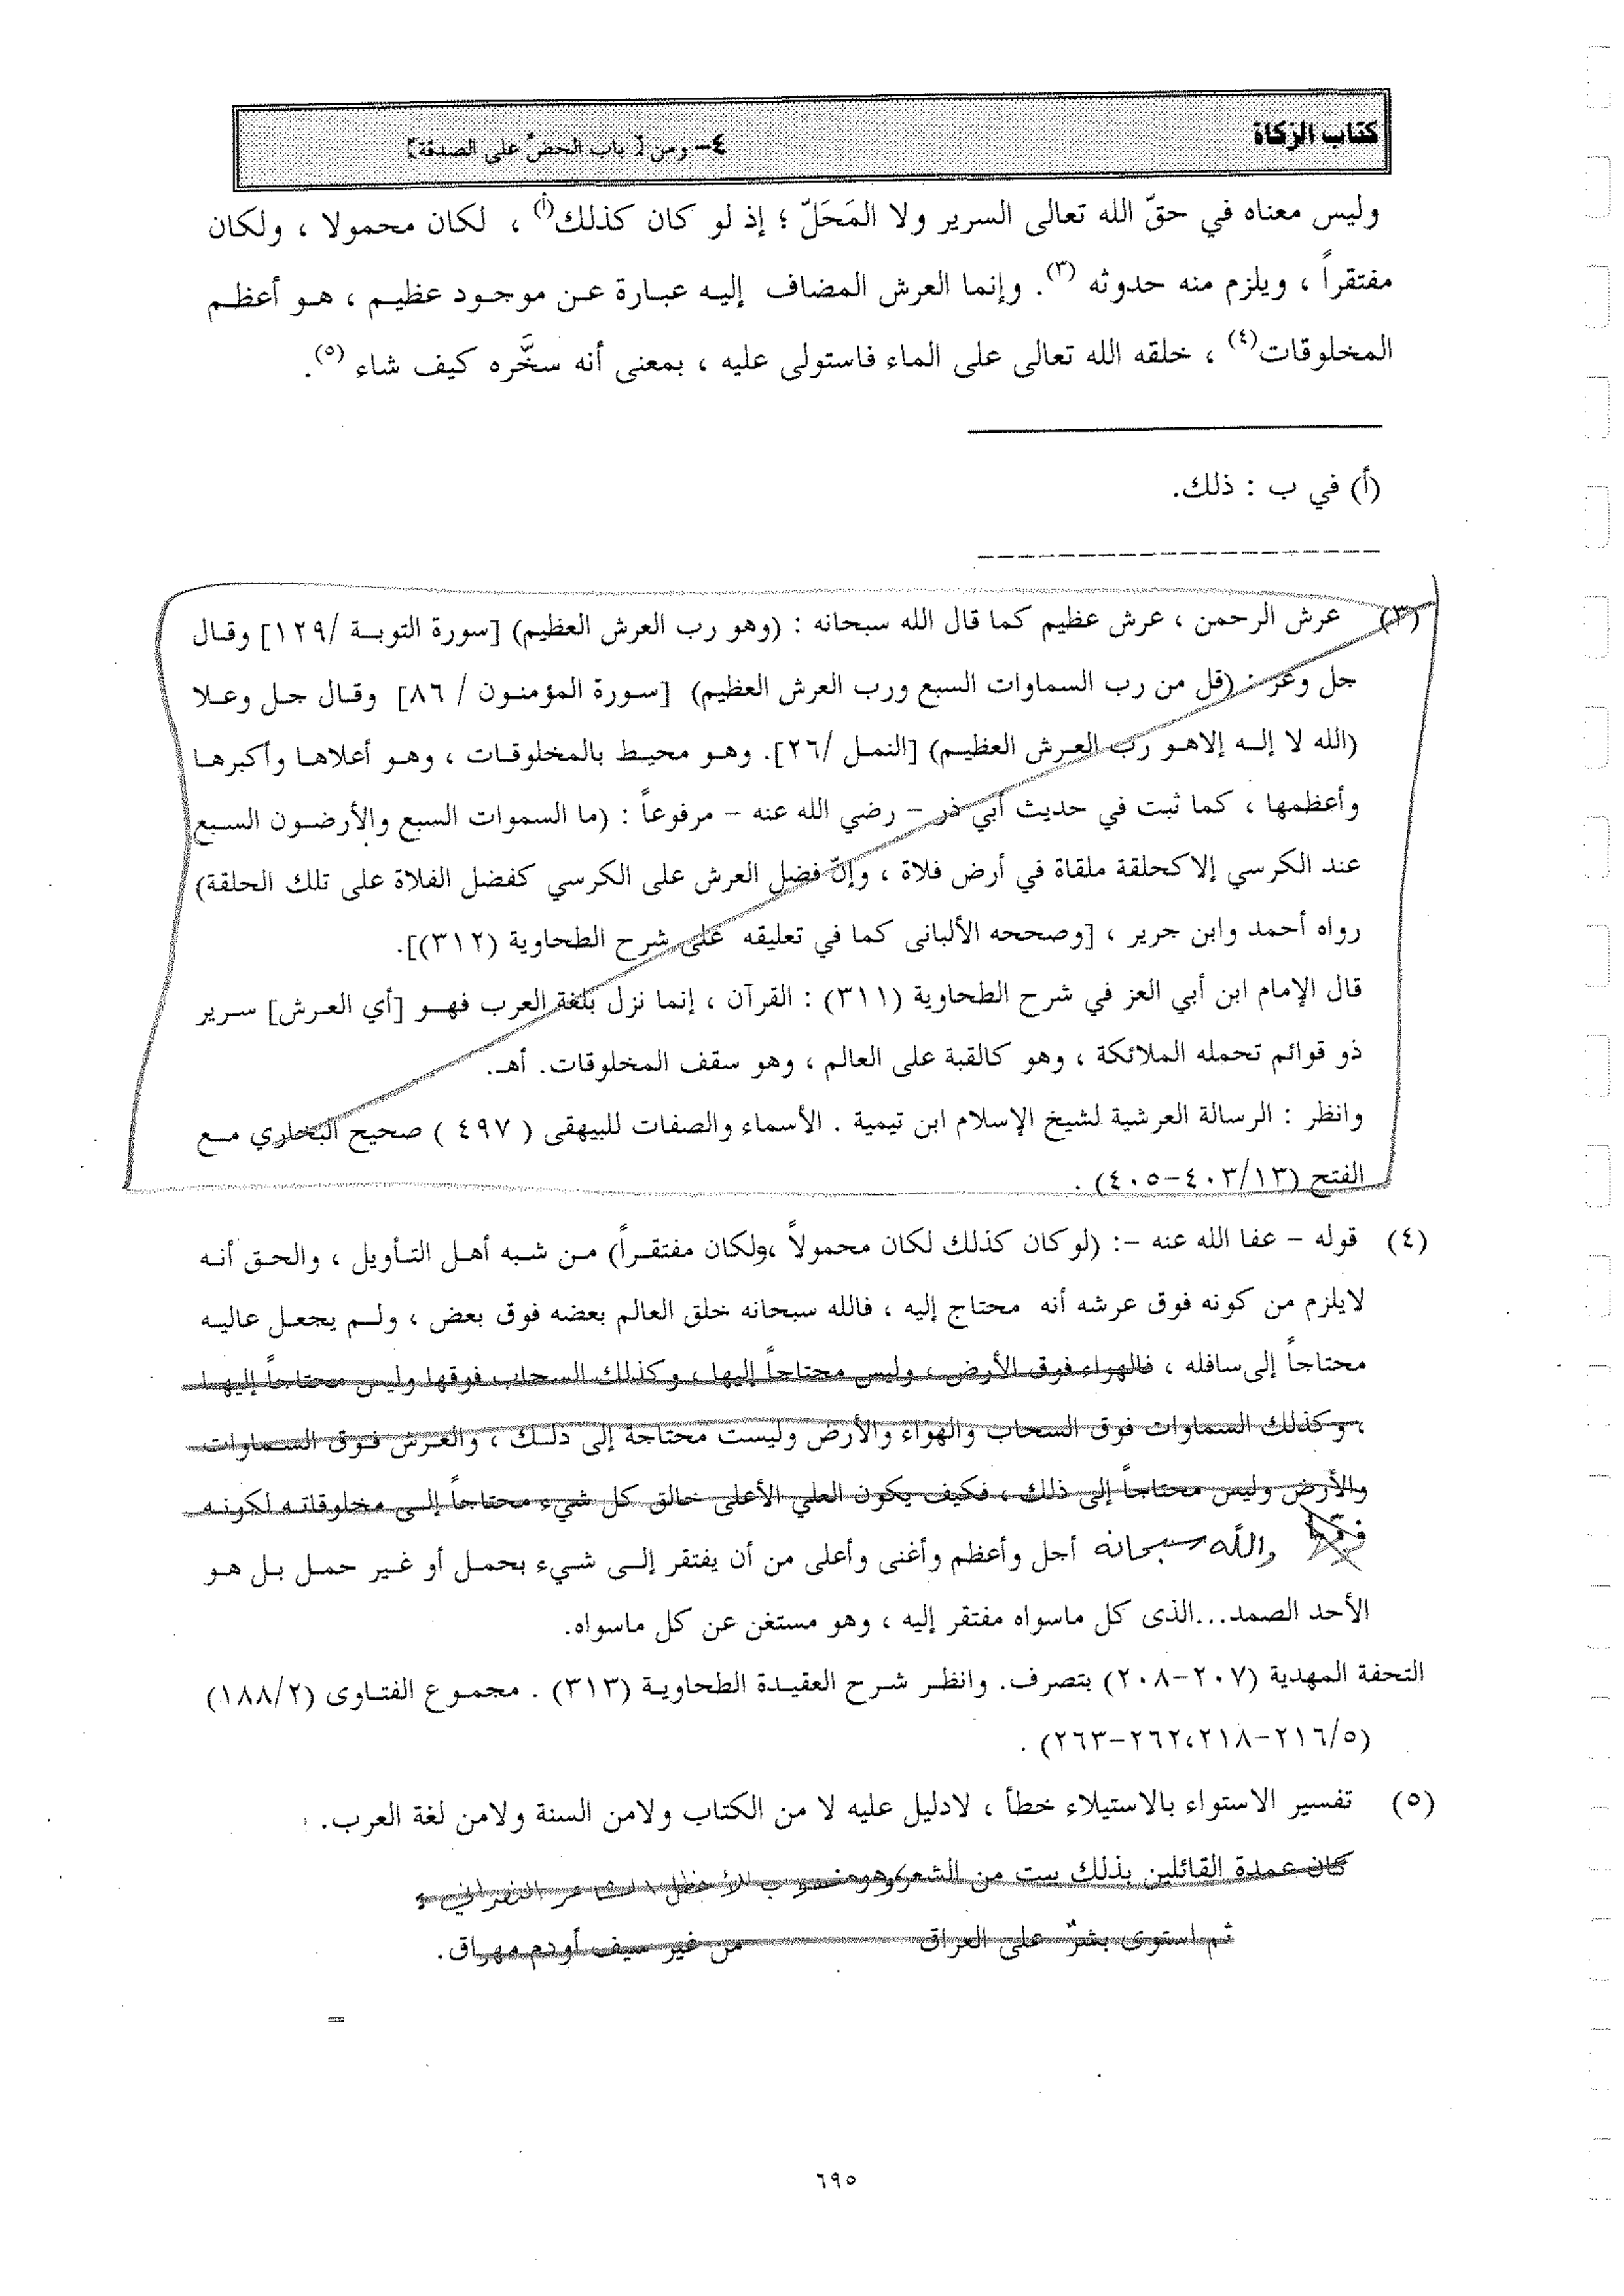 كتاب الزكاة
٤- ومن [ باب الحضّ على الصدقة]
وليس معناه في حقّ الله تعالى السرير ولا المَحَلّ ؛ إذ لو كان كذلك(أ) ، لكان محمولا ، ولكان
مفتقراً ، ويلزم منه حدوثه (٣). وإنما العرش المضاف إليه عبارة عن موجود عظيم ، هو أعظم
المخلوقات(٤) ، خلقه الله تعالى على الماء فاستولى عليه ، بمعنى أنه سخَّره كيف شاء (٥).
(أ) في ب : ذلك.
(٣) عرش الرحمن ، عرش عظيم كما قال الله سبحانه : (وهو رب العرش العظيم) [سورة التوبة /١٢٩] وقال
جل وعز : (قل من رب السماوات السبع ورب العرش العظيم) [سورة المؤمنون / ٨٦] وقال جل وعلا
(الله لا إله إلاهو رب العرش العظيم) [النمل /٢٦]. وهو محيط بالمخلوقات ، وهو أعلاها وأكبرها
وأعظمها ، كما ثبت في حديث أبي ذر - رضي الله عنه - مرفوعاً : (ما السموات السبع والأرضون السبع
عند الكرسي إلا كحلقة ملقاة في أرض فلاة ، وإنّ فضل العرش على الكرسي كفضل الفلاة على تلك الحلقة)
رواه أحمد وابن جرير ، [وصححه الألبانى كما في تعليقه على شرح الطحاوية (٣١٢)].
قال الإمام ابن أبي العز في شرح الطحاوية (٣١١) : القرآن ، إنما نزل بلغة العرب فهو [أي العرش] سرير
ذو قوائم تحمله الملائكة ، وهو كالقبة على العالم ، وهو سقف المخلوقات. أهـ.
وانظر : الرسالة العرشية لشيخ الإسلام ابن تيمية . الأسماء والصفات للبيهقى ( ٤٩٧ ) صحيح البخاري مع
الفتح (٤٠٣/١٣-٤٠٥) .
(٤) قوله - عفا الله عنه -: (لو كان كذلك لكان محمولاً ،ولكان مفتقراً) من شبه أهل التأويل ، والحق أنه
لايلزم من كونه فوق عرشه أنه محتاج إليه ، فالله سبحانه خلق العالم بعضه فوق بعض ، ولم يجعل عاليه
محتاجاً إلى سافله ، فالهواء فوق الأرض ، وليس محتاجاً إليها ، وكذلك السحاب فوقها وليس محتاجاً إليها
، وكذلك السماوات فوق السحاب والهواء والأرض وليست محتاجة إلى ذلك ، والعرش فوق السماوات
والأرض وليس محتاجاً إلى ذلك ، فكيف يكون العلي الأعلى خالق كل شيء محتاجاً إلى مخلوقاته لكونه
والله سبحانه أجل وأعظم وأغنى وأعلى من أن يفتقر إلى شيء بحمل أو غير حمل بل هو
الأحد الصمد...الذى كل ماسواه مفتقر إليه ، وهو مستغن عن كل ماسواه.
التحفة المهدية (٢٠٧-٢٠٨) بتصرف. وانظر شرح العقيدة الطحاوية (٣١٣) . مجموع الفتاوى (١٨٨/٢)
(٢١٦/٥-٢١٨،٢٦٢-٢٦٣) .
(٥) تفسير الاستواء بالاستيلاء خطأ ، لادليل عليه لا من الكتاب ولامن السنة ولامن لغة العرب.
كان عمدة القائلين بذلك بيت من الشعر، وهو منسوب للأخطل الشاعر النصراني :
ثم استوى بشرٌ على العراق من غير سيف أودم مهراق.
=
٦٩٥